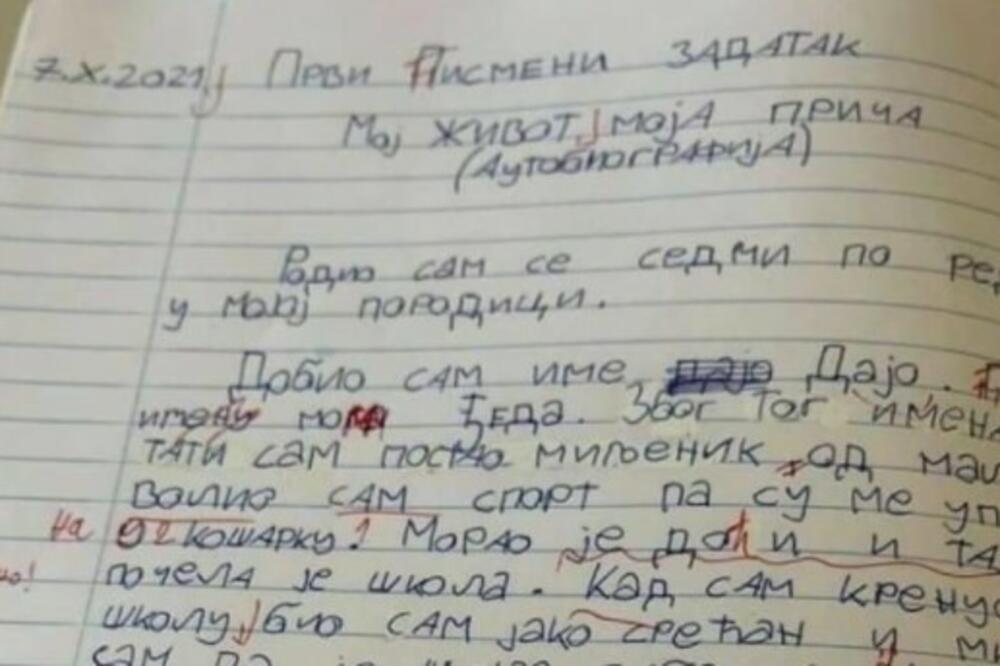 7.X.2021. Први Писмени ЗАДАТАК
Мој живот, моја прича
(Аутобиографија)
Родио сам се седми по
у мојој породици.
Добио сам име Дајо.
Ђеда. Због тог имена
тати сам постао миљеник од
Волио сам спорт па су ме
на кошарку. Морао је доћи и
почела је школа. Кад сам
школу, био сам јако срећан и
сам па је